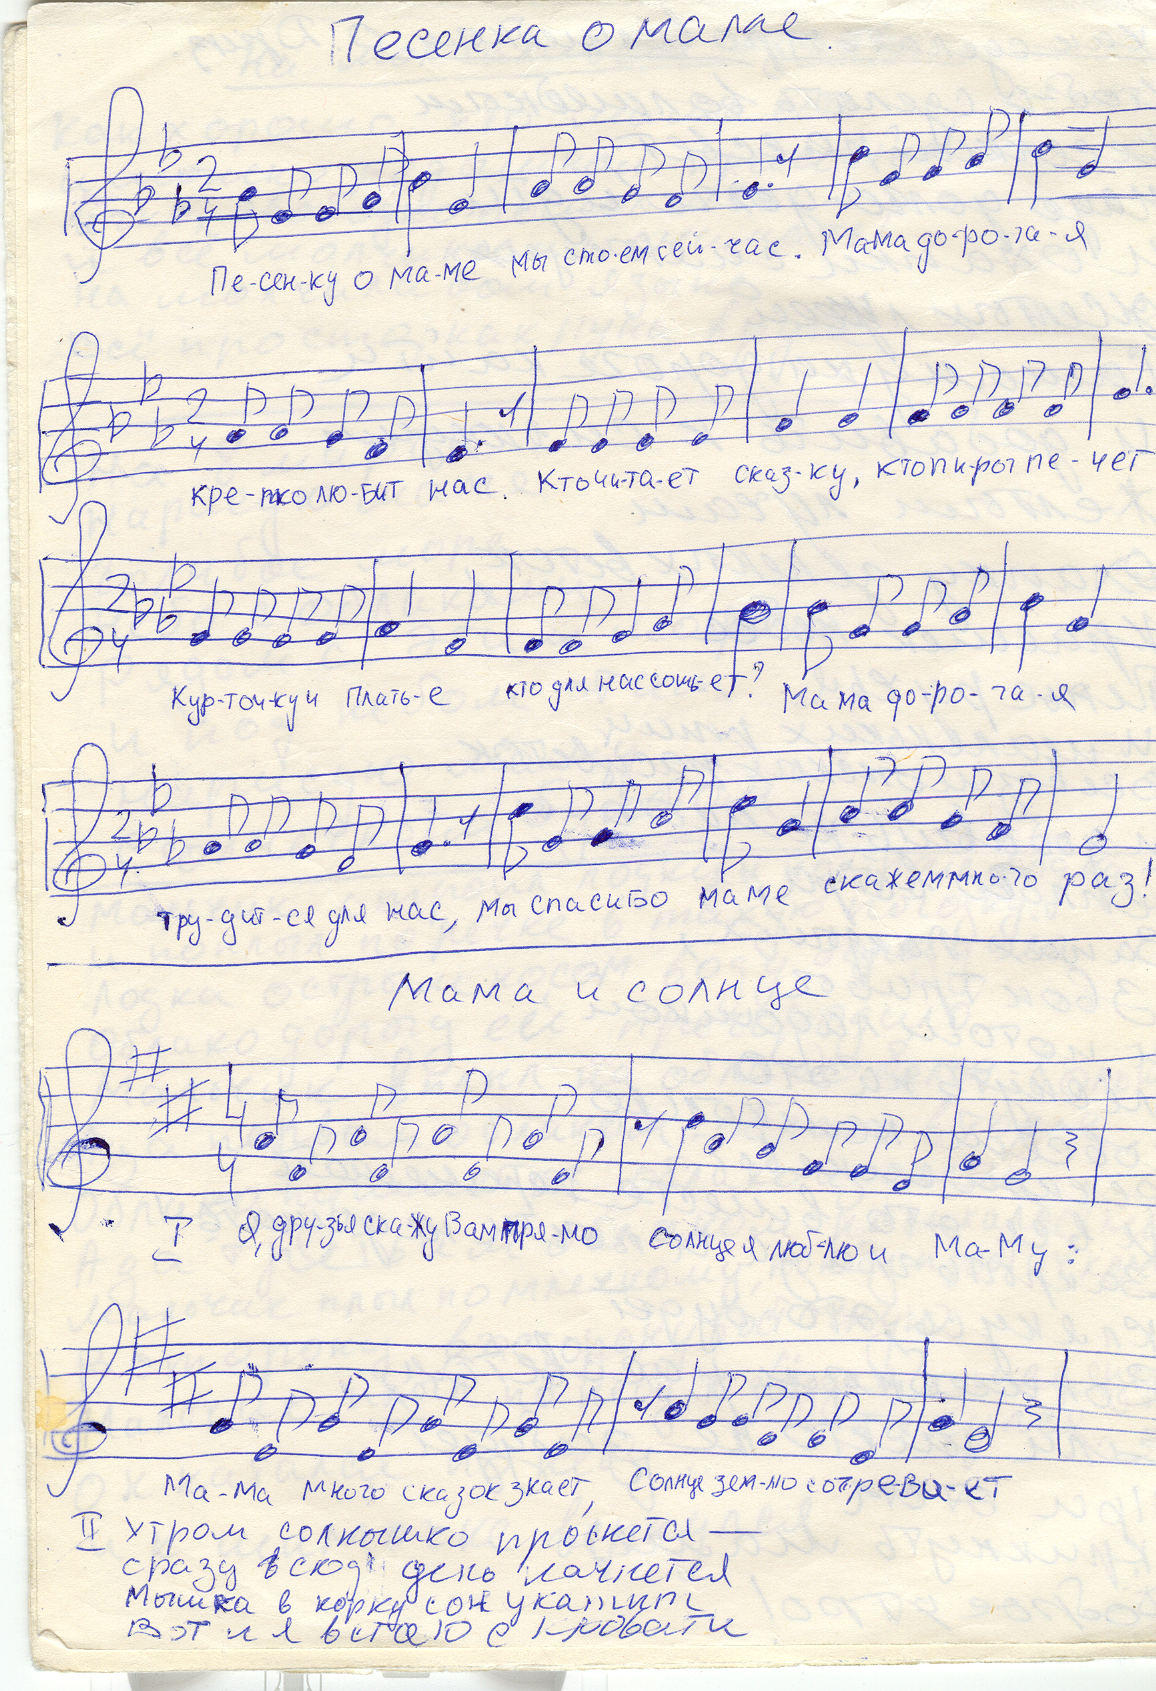 Песенка о маме
2/4
Пе-сен-ку о ма-ме мы споем сей-час. Мама до-ро-га-я
2/4
кре-пко лю-бит нас. Кто чи-та-ет сказ-ку, кто пироги пе-чет
2/4
Кур-точ-ку и плать-е кто для нас сошь-ет? Мама до-ро-га-я
2/4
тру-дит-ся для нас, мы спасибо маме скажем мно-го раз!
Мама и солнце
4/4
I Я, дру-зья ска-жу Вам пря-мо солнце я люб-лю и Ма-Му:
Ма-ма много сказок знает, Солнце зем-лю согре-ва-ет
II Утром солнышко проснется —
сразу всюду день начнется
Мышка в норку сон укатит
Вот и я встаю с кровати